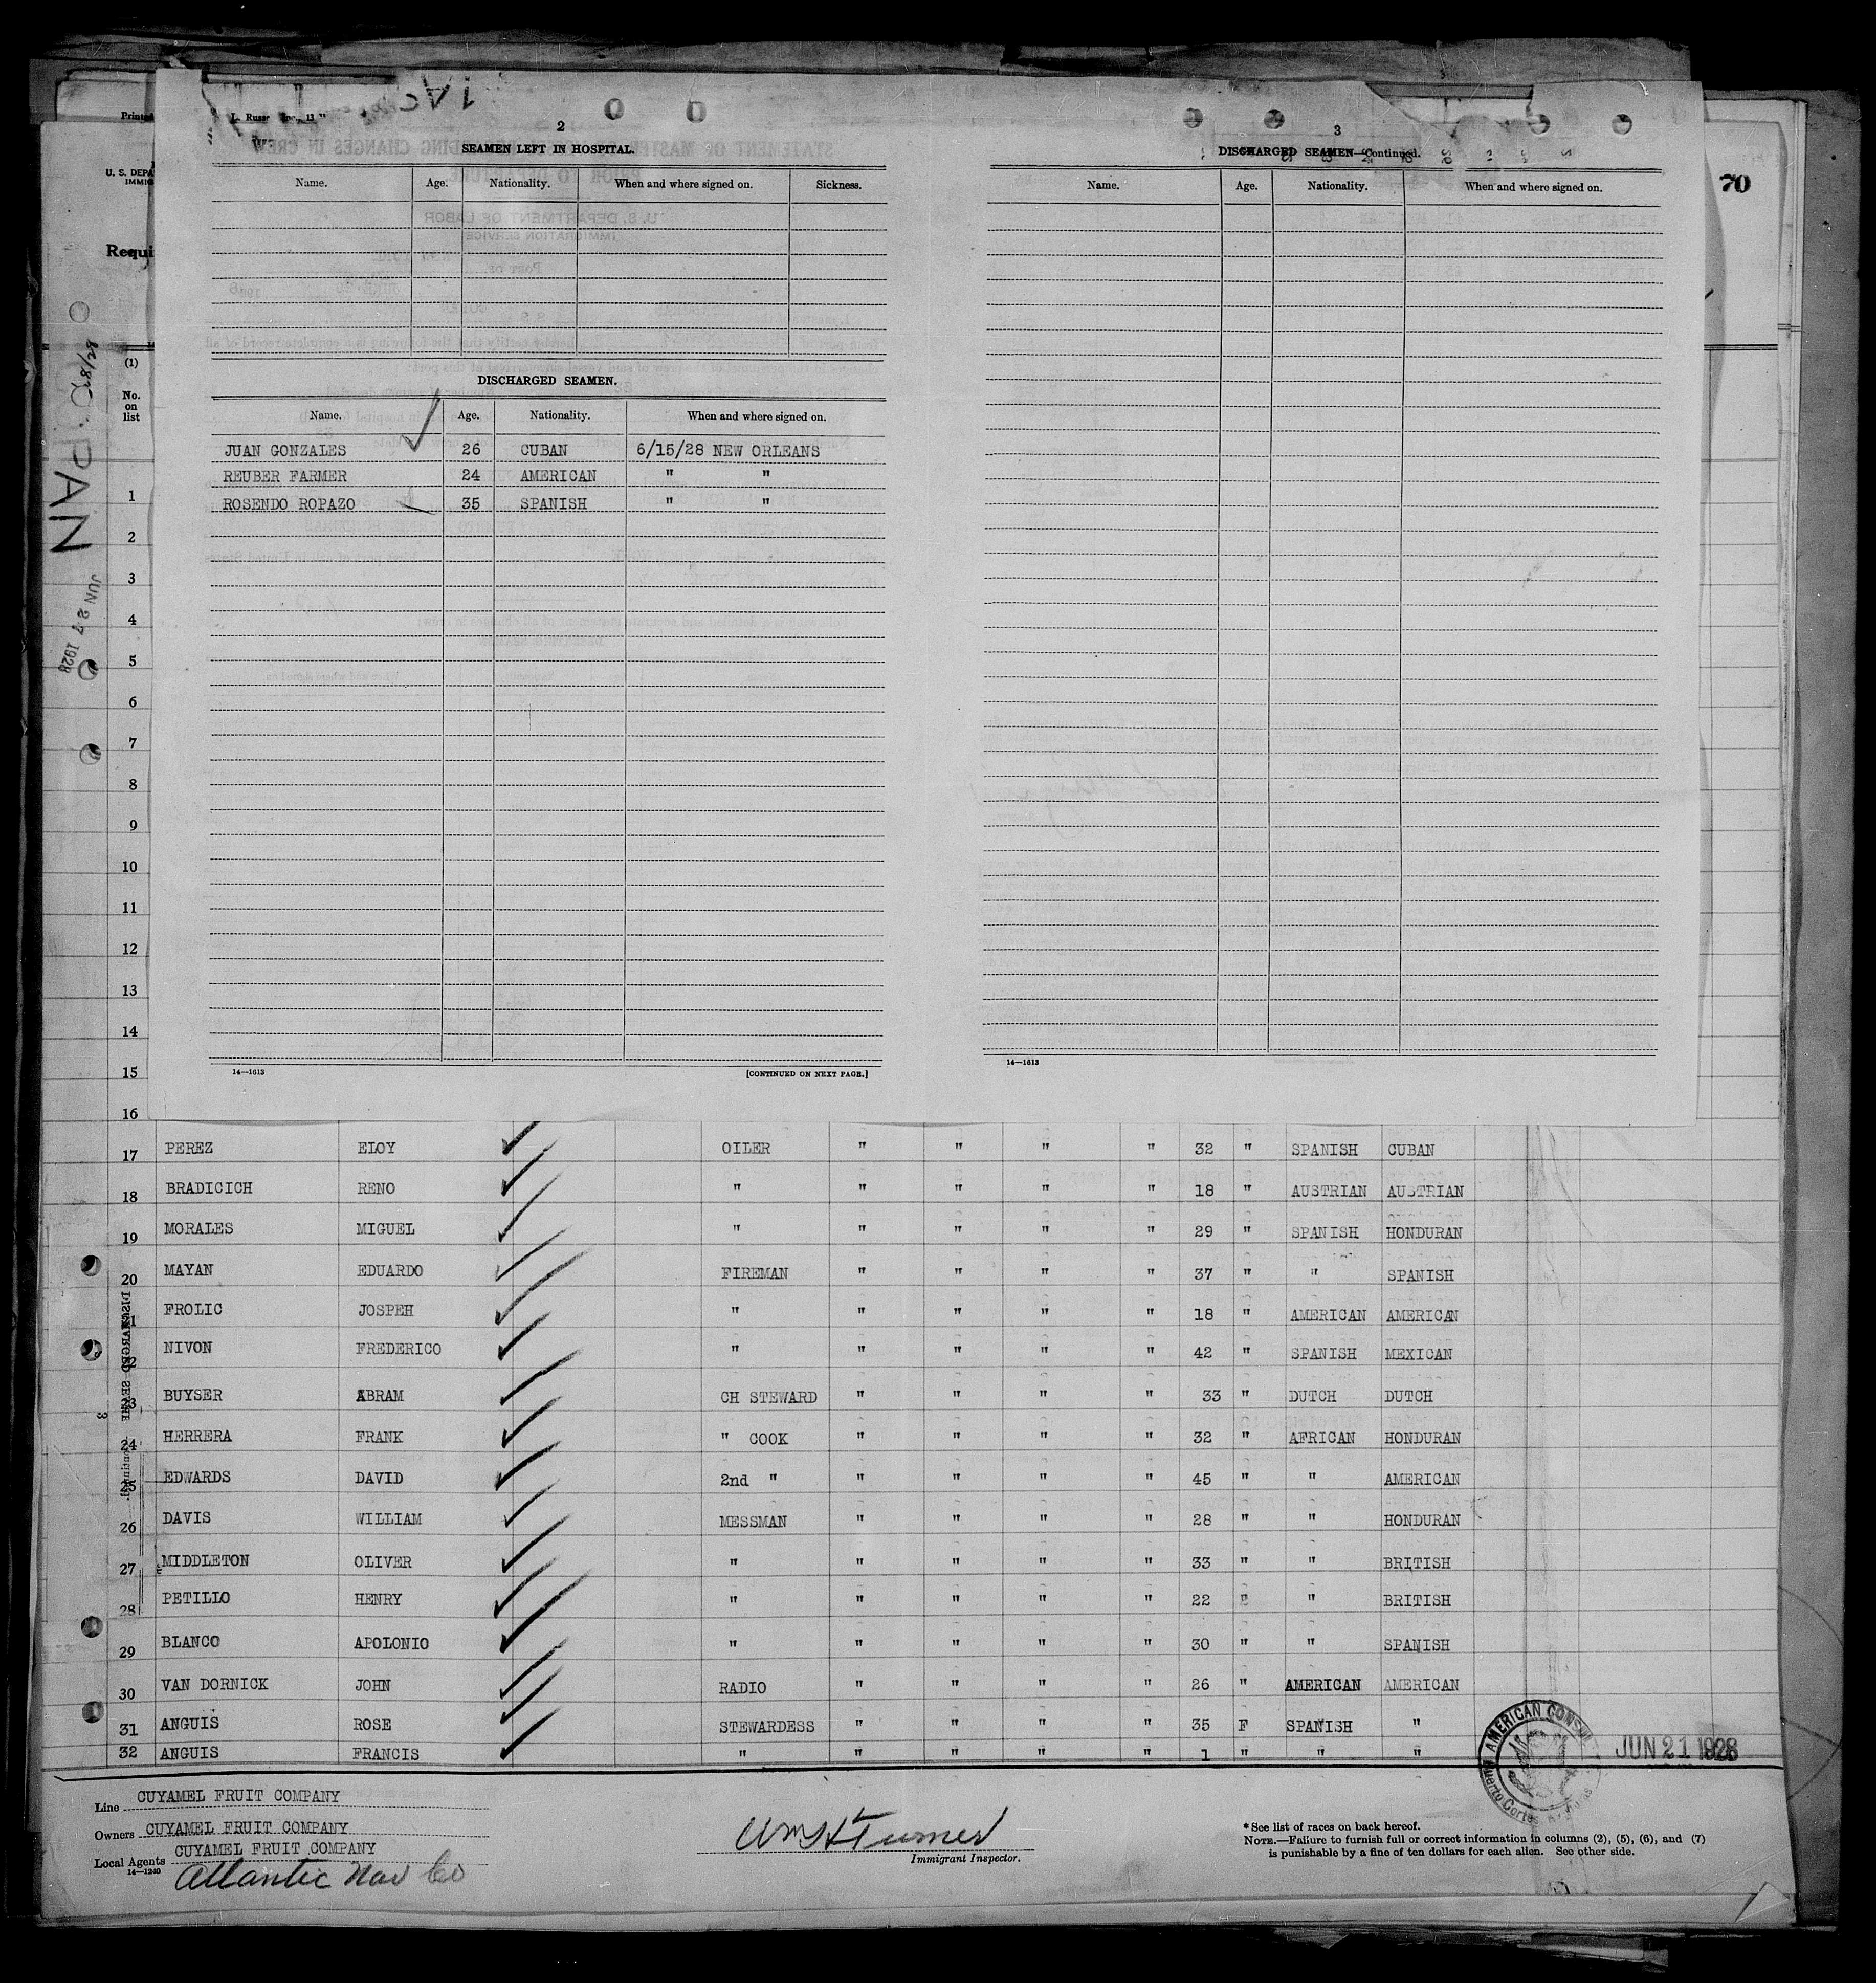 2
SEAMEN LEFT IN HOSPITAL.
Name. Age. Nationality. When and where signed on. Sickness.
DISCHARGED SEAMEN.
Name. Age. Nationality. When and where signed on.
JUAN GONZALES 26 CUBAN 6/15/28 NEW ORLEANS
REUBER FARMER 24 AMERICAN " "
ROSENDO ROPAZO 35 SPANISH " "
14—1613 [CONTINUED ON NEXT PAGE.]
3
DISCHARGED SEAMEN—Continued.
Name. Age. Nationality. When and where signed on.
14—1613
70
Printed
U. S. DEPA
IMMIG
Requi
(1)
No.
on
list
PAN
JUN 27 1928
1
2
3
4
5
6
7
8
9
10
11
12
13
14
15
16
17 PEREZ ELOY OILER " " " " 32 " SPANISH CUBAN
18 BRADICICH RENO " " " " " 18 " AUSTRIAN AUSTRIAN
19 MORALES MIGUEL " " " " " 29 " SPANISH HONDURAN
20 MAYAN EDUARDO FIREMAN " " " " 37 " " SPANISH
21 FROLIC JOSPEH " " " " " 18 " AMERICAN AMERICAN
22 NIVON FREDERICO " " " " " 42 " SPANISH MEXICAN
23 BUYSER ABRAM CH STEWARD " " " " 33 " DUTCH DUTCH
24 HERRERA FRANK " COOK " " " " 32 " AFRICAN HONDURAN
25 EDWARDS DAVID 2nd " " " " " 45 " " AMERICAN
26 DAVIS WILLIAM MESSMAN " " " " 28 " " HONDURAN
27 MIDDLETON OLIVER " " " " " 33 " " BRITISH
28 PETILLO HENRY " " " " " 22 " " BRITISH
29 BLANCO APOLONIO " " " " " 30 " " SPANISH
30 VAN DORNICK JOHN RADIO " " " " 26 " AMERICAN AMERICAN
31 ANGUIS ROSE STEWARDESS " " " " 35 F SPANISH "
32 ANGUIS FRANCIS " " " " " 1 " " "
AMERICAN CONSUL
Puerto Cortes
JUN 21 1928
Line CUYAMEL FRUIT COMPANY
Owners CUYAMEL FRUIT COMPANY
Local Agents CUYAMEL FRUIT COMPANY
14—1240
Atlantic Nav Co
Wm H Turner
Immigrant Inspector.
* See list of races on back hereof.
NOTE.—Failure to furnish full or correct information in columns (2), (5), (6), and (7)
is punishable by a fine of ten dollars for each alien. See other side.